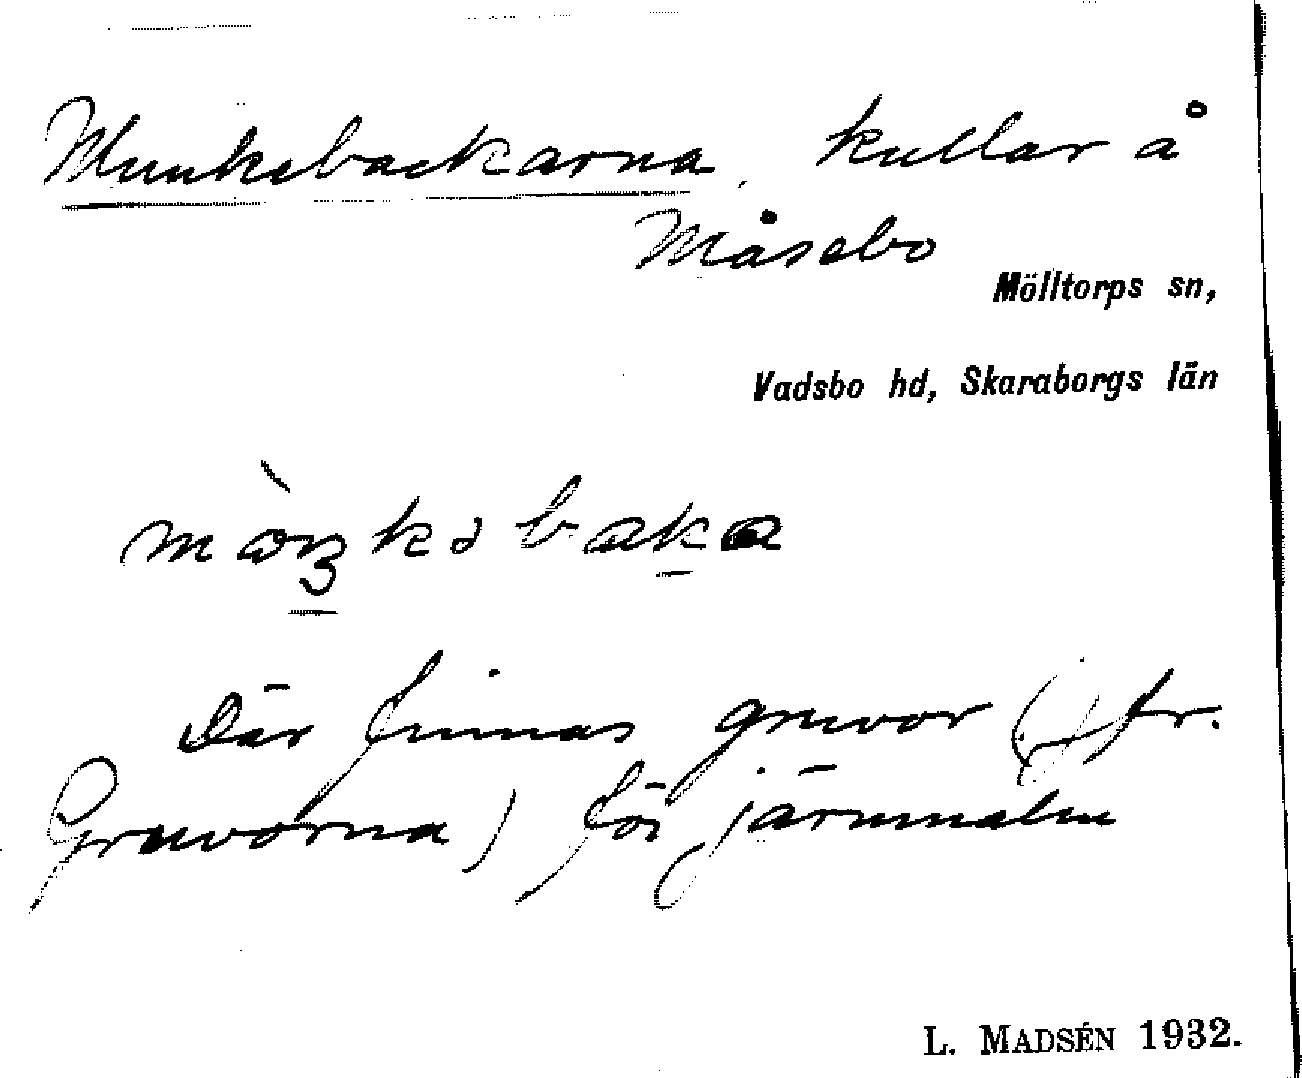 Munkebackarna, kullar å
Måsebo
Mölltorps sn,
Vadsbo hd, Skaraborgs län
Där finnas gruvor (jfr.
Gruvorna) för järnmalm
L. MADSÉN 1932.